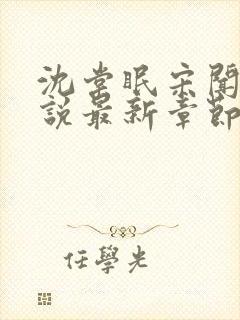 沈棠眠宋聞
說最新章節
任學光